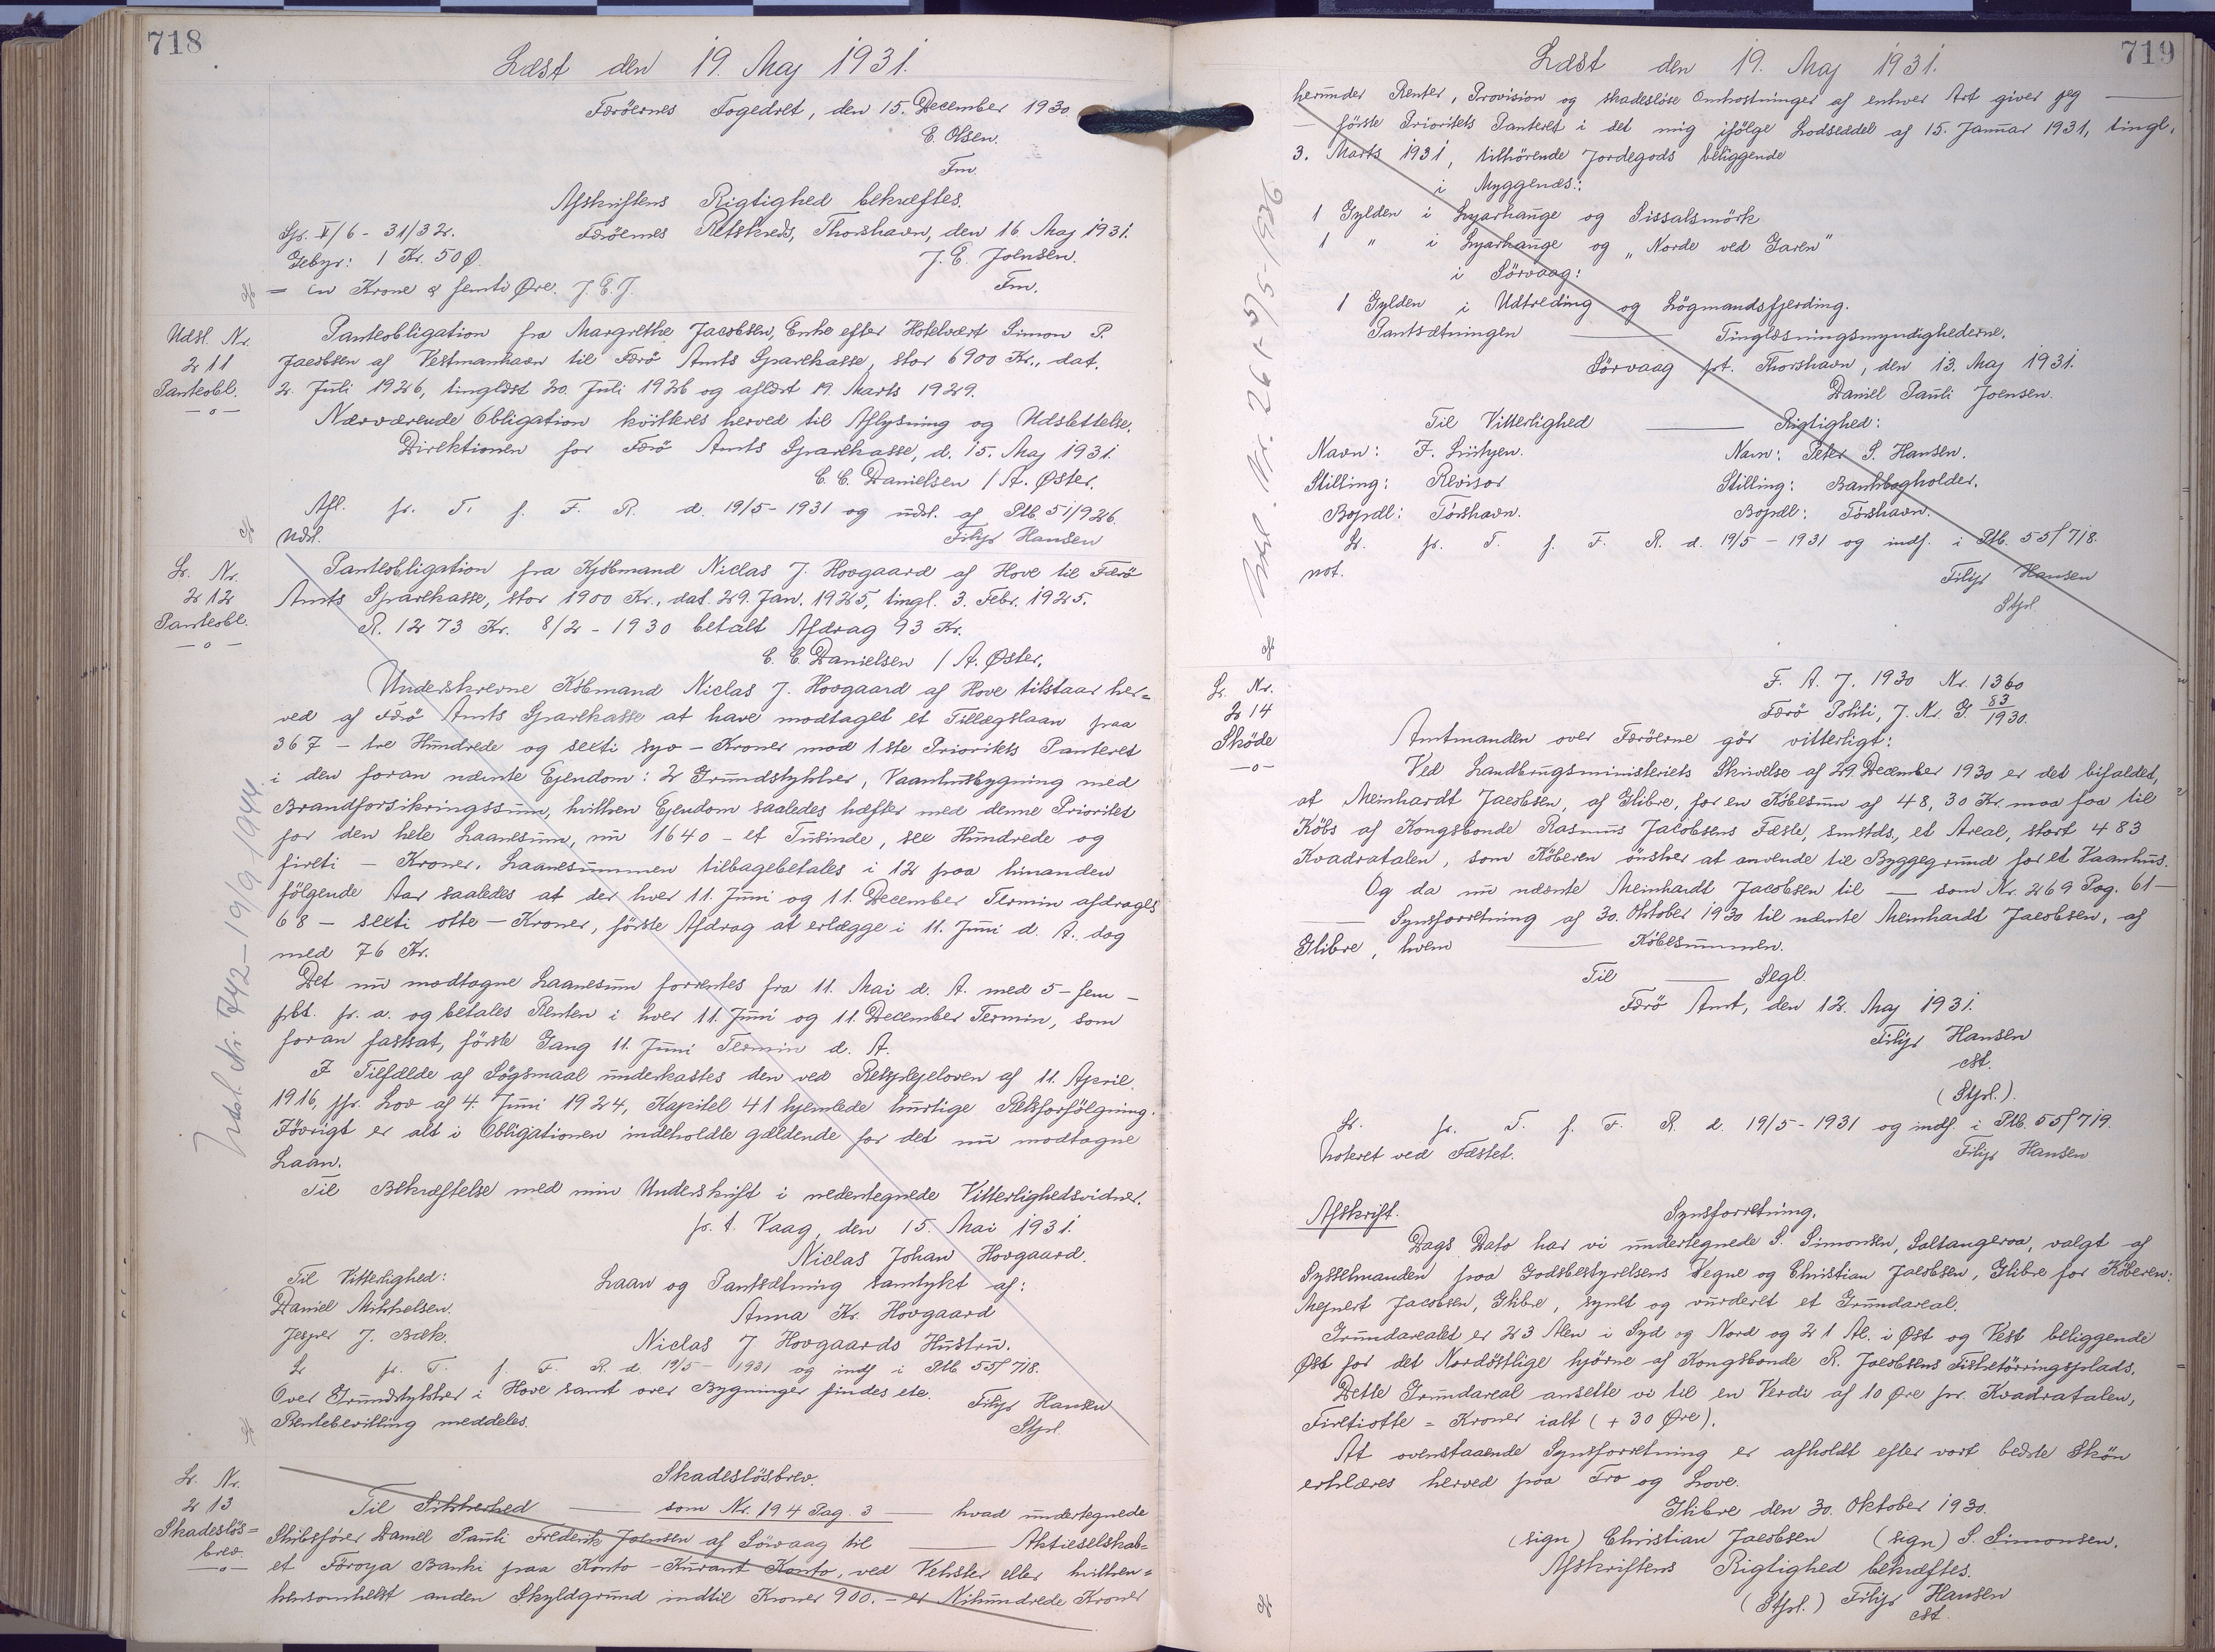 718
Læst den 19. Maj 1931.
Færöernes Fogedret, den 15. December 1930
E. Olsen.
Fm.
Afskriftens Rigtighed bekræftes.
Færöernes Retskreds, Thorshavn, den 16. Maj 1931.
J. E. Joensen.
Fm.
Sp. V/6 - 31/32.
Gebyr: 1 Kr. 50 Ø.
= en Krone & femti Øre. J. E. J.
Udsl. Nr.
211
Panteobl.
—o—
Panteobligation fra Margrethe Jacobsen, Enke efter Hotelvært Simon P.
Jacobsen af Vestmanhavn til Færö Amts Sparekasse, stor 6900 Kr., dat.
2. Juli 1926, tinglæst 20. Juli 1926 og aflæst 19. Marts 1929.
Nærværende Obligation kvitteres herved til Aflysning og Udslettelse.
Direktionen for Færö Amts Sparekasse, d. 15. Maj 1931.
C. C. Danielsen / A. Øster.
Afl. fr. T. f. F. R. d. 19/5 - 1931 og udsl. af Ptb. 51/926.
Udsl. Filip Hansen
Lr. Nr.
212
Panteobl.
—o—
Panteobligation fra Kjöbmand Niclas J. Hovgaard af Hove til Færö
Amts Sparekasse, stor 1900 Kr., dat. 29. Jan. 1925, tingl. 3. Febr. 1925.
R. 1273 Kr. 8/2 - 1930 betalt Afdrag 93 Kr.
C. C. Danielsen / A. Øster.
Underskrevne Köbmand Niclas J. Hovgaard af Hove tilstaar her=
ved af Færö Amts Sparekasse at have modtaget et Tillægslaan paa
367 – tre Hundrede og sexti syv – Kroner mod 1ste Prioritets Panteret
i den foran nævnte Ejendom: 2 Grundstykker, Vaanhusbygning med
Brandforsikringssum, hvilken Ejendom saaledes hæfter med denne Prioritet
for den hele Laanesum, nu 1640 – et Tusinde, sex Hundrede og
fireti – Kroner. Laanesummen tilbagebetales i 12 paa hinanden
fölgende Aar saaledes at der hver 11. Juni og 11. December Termin afdrages
68 – sexti otte – Kroner, förste Afdrag at erlægge i 11. Juni d. A. dog
med 76 Kr.
Det nu modtagne Laanesum forrentes fra 11. Mai d. A. med 5 – fem –
pCt. pr. a. og betales Renten i hver 11. Juni og 11. December Termin, som
foran fastsat, förste Gang 11. Juni Termin d. A.
I Tilfælde af Sögsmaal underkastes den ved Retsplejeloven af 11. April
1916, jfr. Lov af 4. Juni 1924, Kapitel 41 hjemlede hurtige Retsforfölgning.
Iövrigt er alt i Obligationen indeholdte gældende for det nu modtagne
Laan.
Til Bekræftelse med min Underskrift i nedentegnede Vitterlighedsvidner.
p. t. Vaag, den 15. Mai 1931.
Niclas Johan Hovgaard.
Til Vitterlighed:
Daniel Mikkelsen.
Jesper J. Bæk.
Laan og Pantsætning samtykt af:
Anna Kr. Hovgaard
Niclas J Hovgaards Hustru.
Lr. fr. T. f. F. R. d. 19/5 - 1931 og indf. i Ptb. 55f 718.
Over Grundstykker i Hove samt over Bygninger findes ete.
Rentebevilling meddeles.
Filip Hansen
Stpl.
Udsl. Nr. 742 – 19/9 - 1944
Lr. Nr.
213
Skadeslös=
brev.
—o—
Skadeslösbrev.
Til Sikkerhed —— som Nr. 194 Pag. 3 —— hvad undertegnede
Skibsförer Daniel Pauli Frederik Joensen af Sörvaag til —— Aktieselskab=
et Föroya Banki paa Konto - Kurant Konto, ved Veksler eller hvilken=
kensomhelst anden Skyldgrund indtil Kroner 900. – er Nihundrede Kroner
719
Læst den 19. Maj 1931.
herunder Renter, Provision og skadeslöse Omkostninger af enhver Art giver jeg ——
— förste Prioritets Panteret i det mig ifölge Lodseddel af 15. Januar 1931, tingl.
3. Marts 1931, tilhörende Jordegods beliggende
i Myggenæs:
1 Gylden i Lyarhauge og Pissalsmörk
1 " i Lyarhauge og „Norde ved Garen"
i Sörvaag:
1 Gylden i Udtreding og Lögmandsfjerding.
Pantsætningen —— Tinglæsningsmyndighederne.
Sörvaag pt. Thorshavn, den 13. Maj 1931.
Daniel Pauli Joensen.
Til Vitterlighed —— Rigtighed:
Navn: F. Lüstyen. Navn: Peter S. Hansen.
Stilling: Revisor Stilling: Bankbogholder.
Bopæl: Tórshavn. Bopæl: Tórshavn.
Lr. fr. T. f. F. R. d. 19/5 - 1931 og indf. i Ptb. 55f 718.
not.
Filip Hansen
Stpl.
Udsl. Nr. 261 - 5/5 - 1936
Lr. Nr.
214
Sköde
—o—
F. A. J. 1930 Nr. 1360
Færö Politi, J. Nr. G. 83/1930.
Amtmanden over Færöerne gör vitterligt:
Ved Landbrugsministeriets Skrivelse af 29. December 1930 er det bifaldet,
at Meinhardt Jacobsen, af Glibre, for en Köbesum af 48, 30 Kr. maa faa til
Köbs af Kongsbonde Rasmus Jacobsens Fæste, smstds., et Areal, stort 483
Kvadratalen, som Köberen önsker at anvende til Byggegrund for et Vaanhus.
Og da nu nævnte Meinhardt Jacobsen til — som Nr. 269 Pag. 61 —
—— Synsforretning af 30. Oktober 1930 til nævnte Meinhardt Jacobsen, af
Glibre, hvem —— Köbesummen.
Til —— Segl.
Færö Amt, den 12. Maj 1931.
Filip Hansen
cst.
(Stpl.).
Lr. fr. T. f. F. R. d. 19/5 - 1931 og indf. i Ptb. 55f 719.
Noteret ved Fæstet. Filip Hansen
Afskrift. Synsforretning.
Dags Dato har vi undertegnede S. Simonsen, Saltangeraa, valgt af
Sysselmanden paa Godsbestyrelsens Vegne og Christian Jacobsen, Glibre for Köberen:
Mejnert Jacobsen, Glibre, synet og vurderet et Grundareal.
Grundarealet er 23 Alen i Syd og Nord og 21 Al. i Øst og Vest beliggende
Øst for det Nordöstlige hjörne af Kongsbonde R. Jacobsens Fisketörringsplads.
Dette Grundareal ansætte vi til en Verdi af 10 Øre pr. Kvadratalen,
Firetiotte = Kroner ialt (+ 30 Øre).
At ovenstaaende Synsforretning er afholdt efter vort bedste Skön
erklæres herved paa Tro og Love.
Glibre den 30. Oktober 1930.
(sign) Christian Jacobsen (sign) S. Simonsen.
Afskriftens Rigtighed bekræftes.
(Stpl.) Filip Hansen
cst.